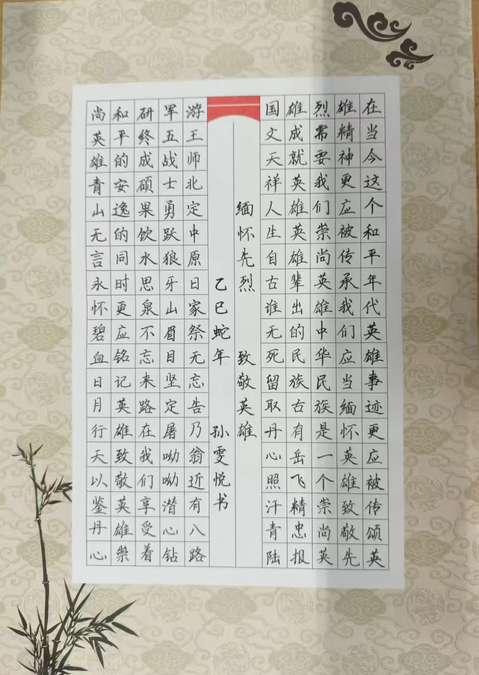 在当今这个和平年代英雄事迹更应被传颂英
雄精神更应被传承我们应当缅怀英雄致敬先
烈需要我们崇尚英雄中华民族是一个崇尚英
雄成就英雄英雄辈出的民族古有岳飞精忠报
国文天祥人生自古谁无死留取丹心照汗青陆
缅怀先烈 致敬英雄
乙巳蛇年 孙雯悦书
游王师北定中原日家祭无忘告乃翁近有八路
军五战士勇跃狼牙山眉目坚定屠呦呦潜心钻
研终成硕果饮水思泉不忘来路在我们享受着
和平的安逸的同时更应铭记英雄致敬英雄崇
尚英雄青山无言永怀碧血日月行天以鉴丹心